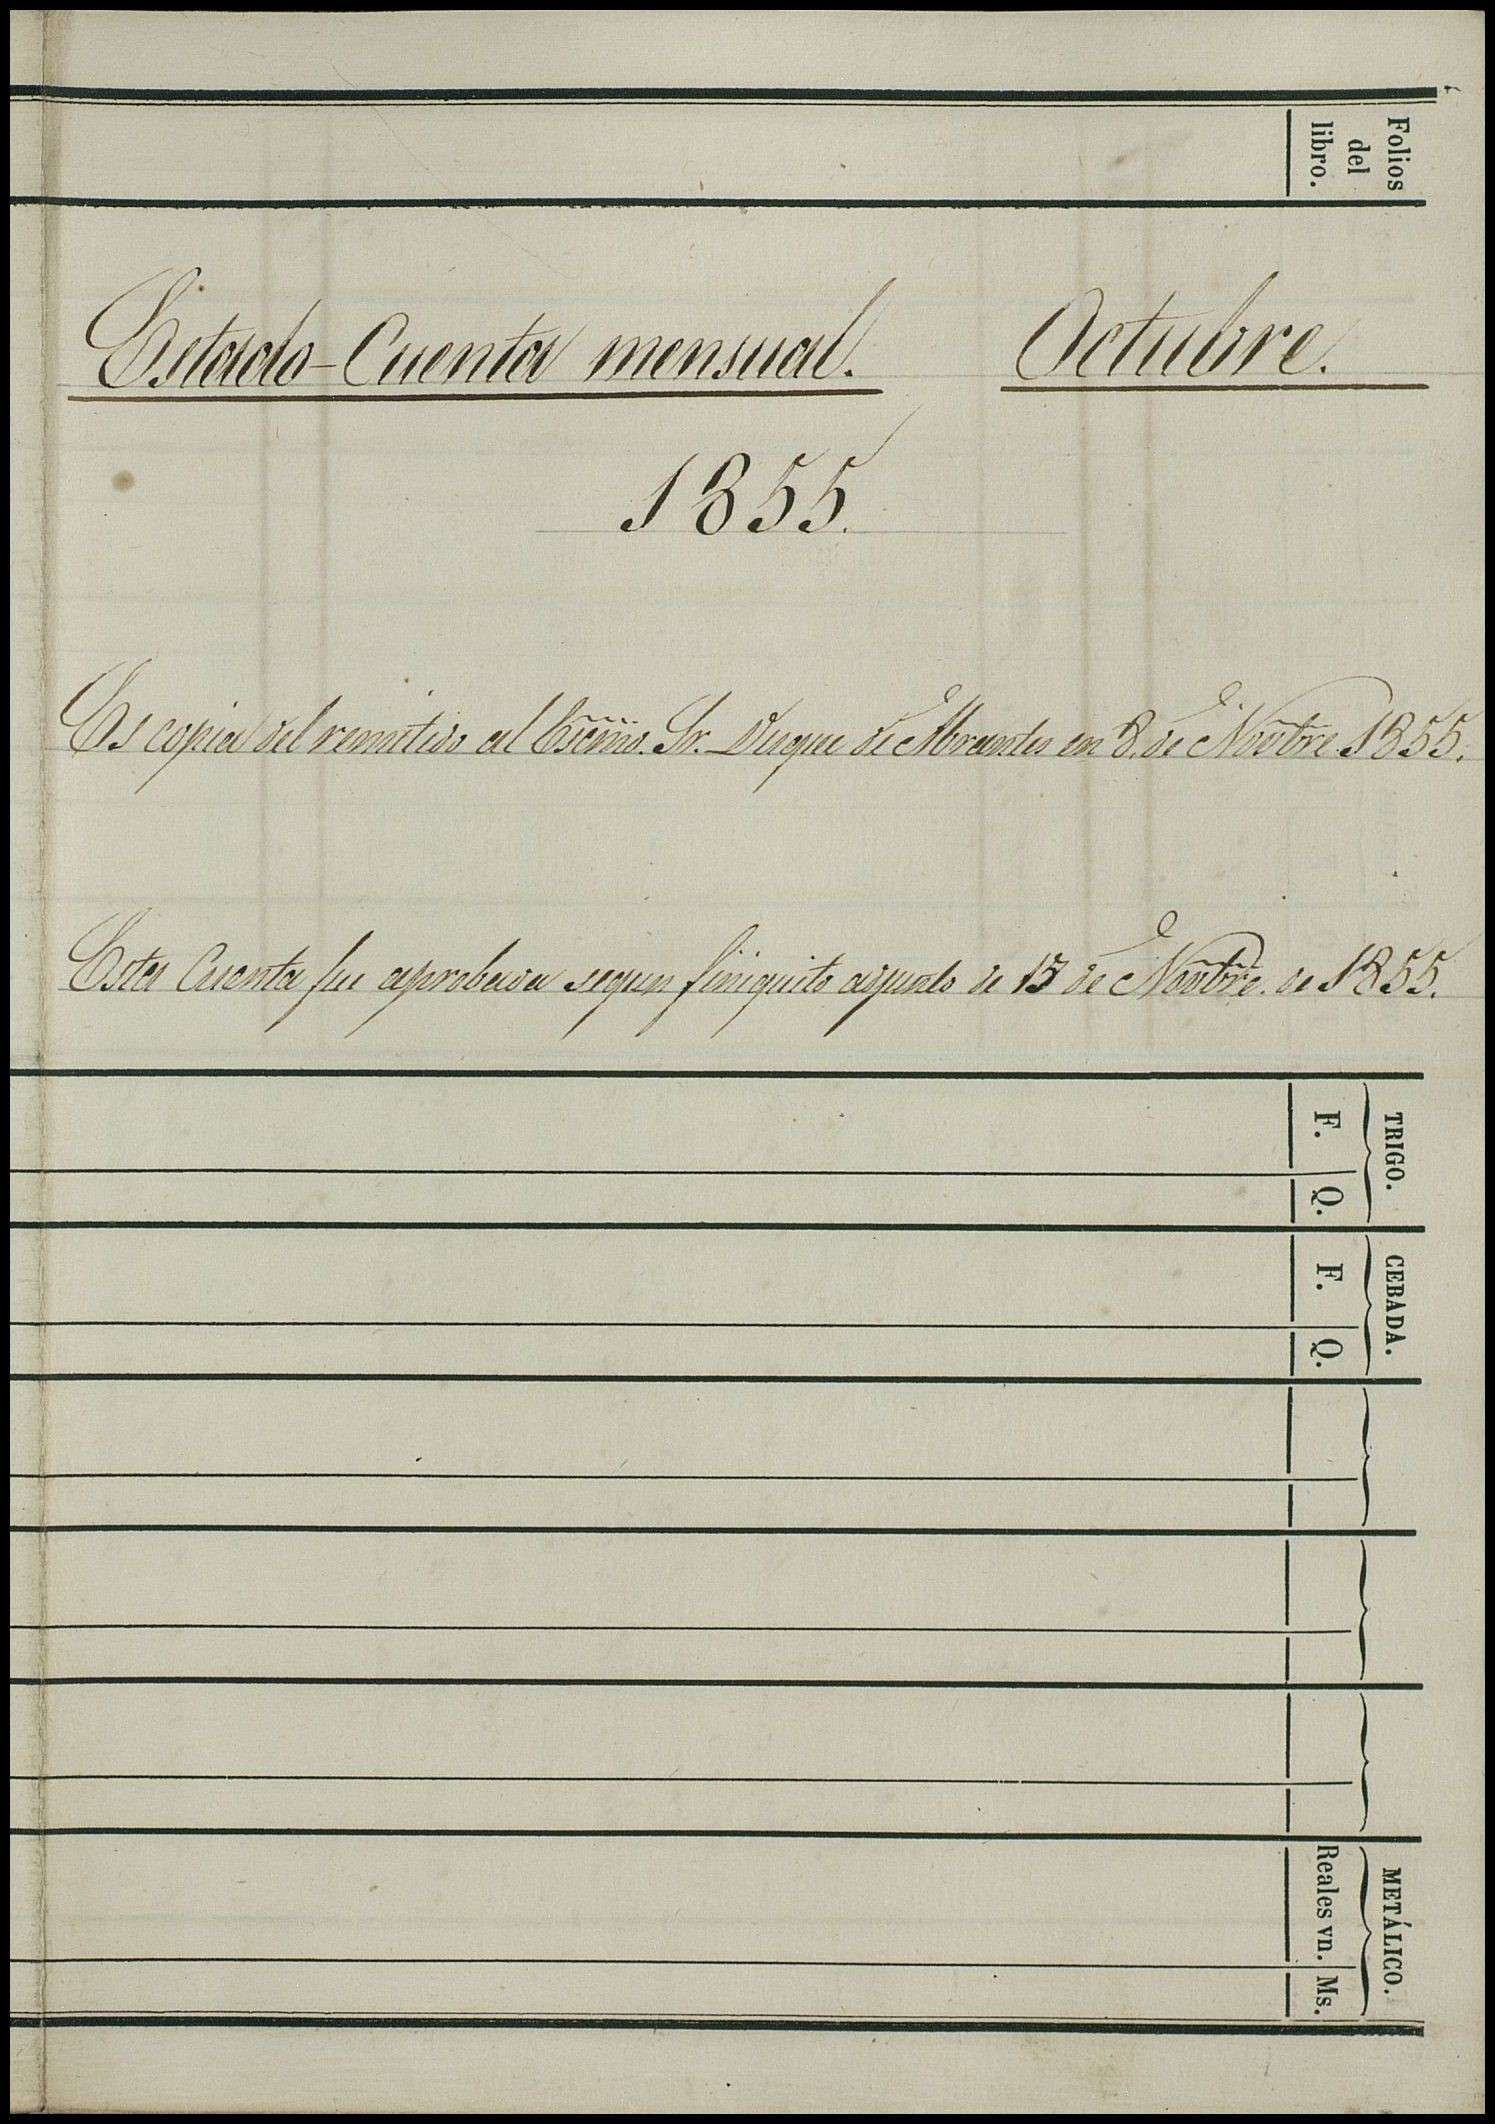 Folios
del
libro.
Estado-Cuenta mensual. Octubre.
1855.
Es copia del remitido al Escmo. Sr. Duque de Abrantes en 8. de Novbre 1855.
Esta Cuenta fue aprobada segun finiquito adjunto de 13 de Novbre. de 1855.
TRIGO.
F. Q.
CEBADA.
F. Q.
METÁLICO.
Reales vn. Ms.